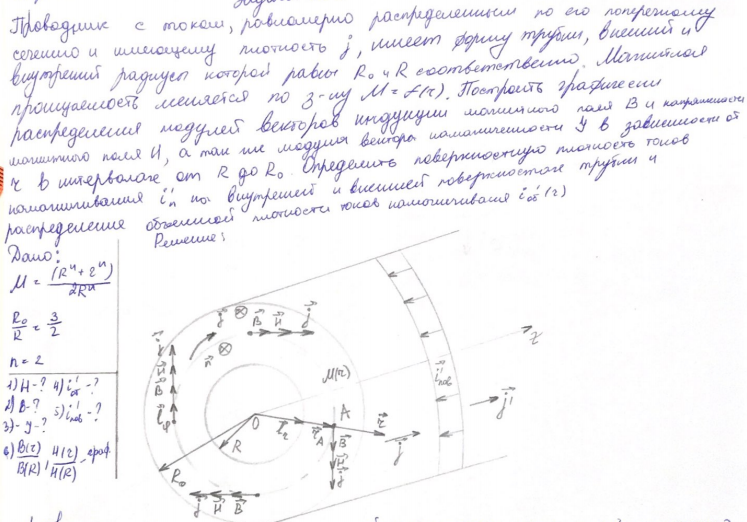 Проводник с током, равномерно распределенным по его поперечному
сечению и имеющему плотность j, имеет форму трубки, внешний и
внутренний радиусы которой равны R₀ и R соответственно. Магнитная
проницаемость меняется по з-ну M = f(r). Построить графически
распределения модулей векторов индукции магнитного поля B и напряженности
магнитного поля H, а так же модуля вектора намагниченности y в зависимости от
r в интервале от R до R₀. Определить поверхностную плотность токов
намагничивания i'п на внутренней и внешней поверхностях трубки и
распределение объемной плотности токов намагничивания i'об (r)
Решение:
Дано:
M = (Rⁿ + rⁿ) / 2Rⁿ
R₀/R = 3/2
n = 2
1) H - ? 4) i'об - ?
2) B - ? 5) i'пов - ?
3) - y - ?
B(r)/B(R), H(r)/H(R) граф.
j
B H j
n
M(r)
z
i'пов
j'
A
O
R
R₀
r
B
H
j
j H B